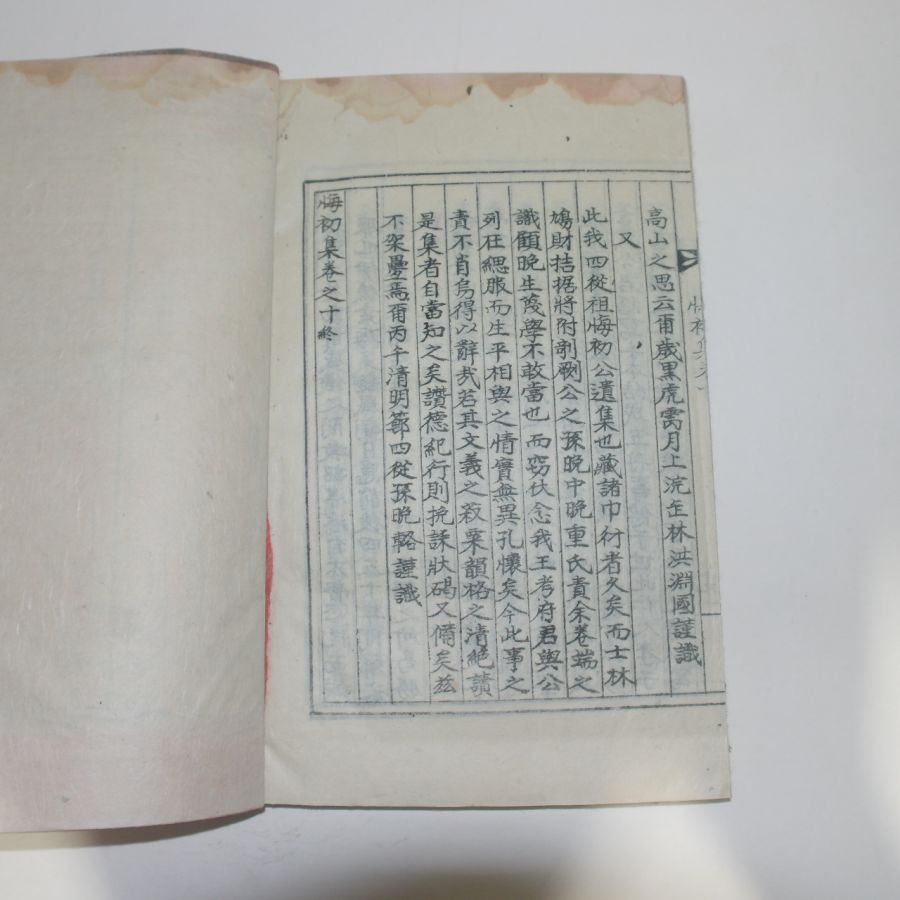 悔初集卷之十
高山之思云爾歲黑虎窩月上浣玄林洪淵國謹識
又
此我四從祖悔初公遺集也藏諸巾衍者久矣而士林
鳩財拮据將附剞劂公之孫晩中晩重氏責余卷端之
識顧晩生蔑學不敢當也而窃伏念我王考府君與公
列在緦服而生平相與之情實無異孔懷矣今此事之
責不肖烏得以辭哉若其文義之菽粟韻格之清絶讀
是集者自當知之矣讚德紀行則挽誄狀碣又備矣玆
不架疊焉爾丙午清明節四從孫晩輅謹識
悔初集卷之十終